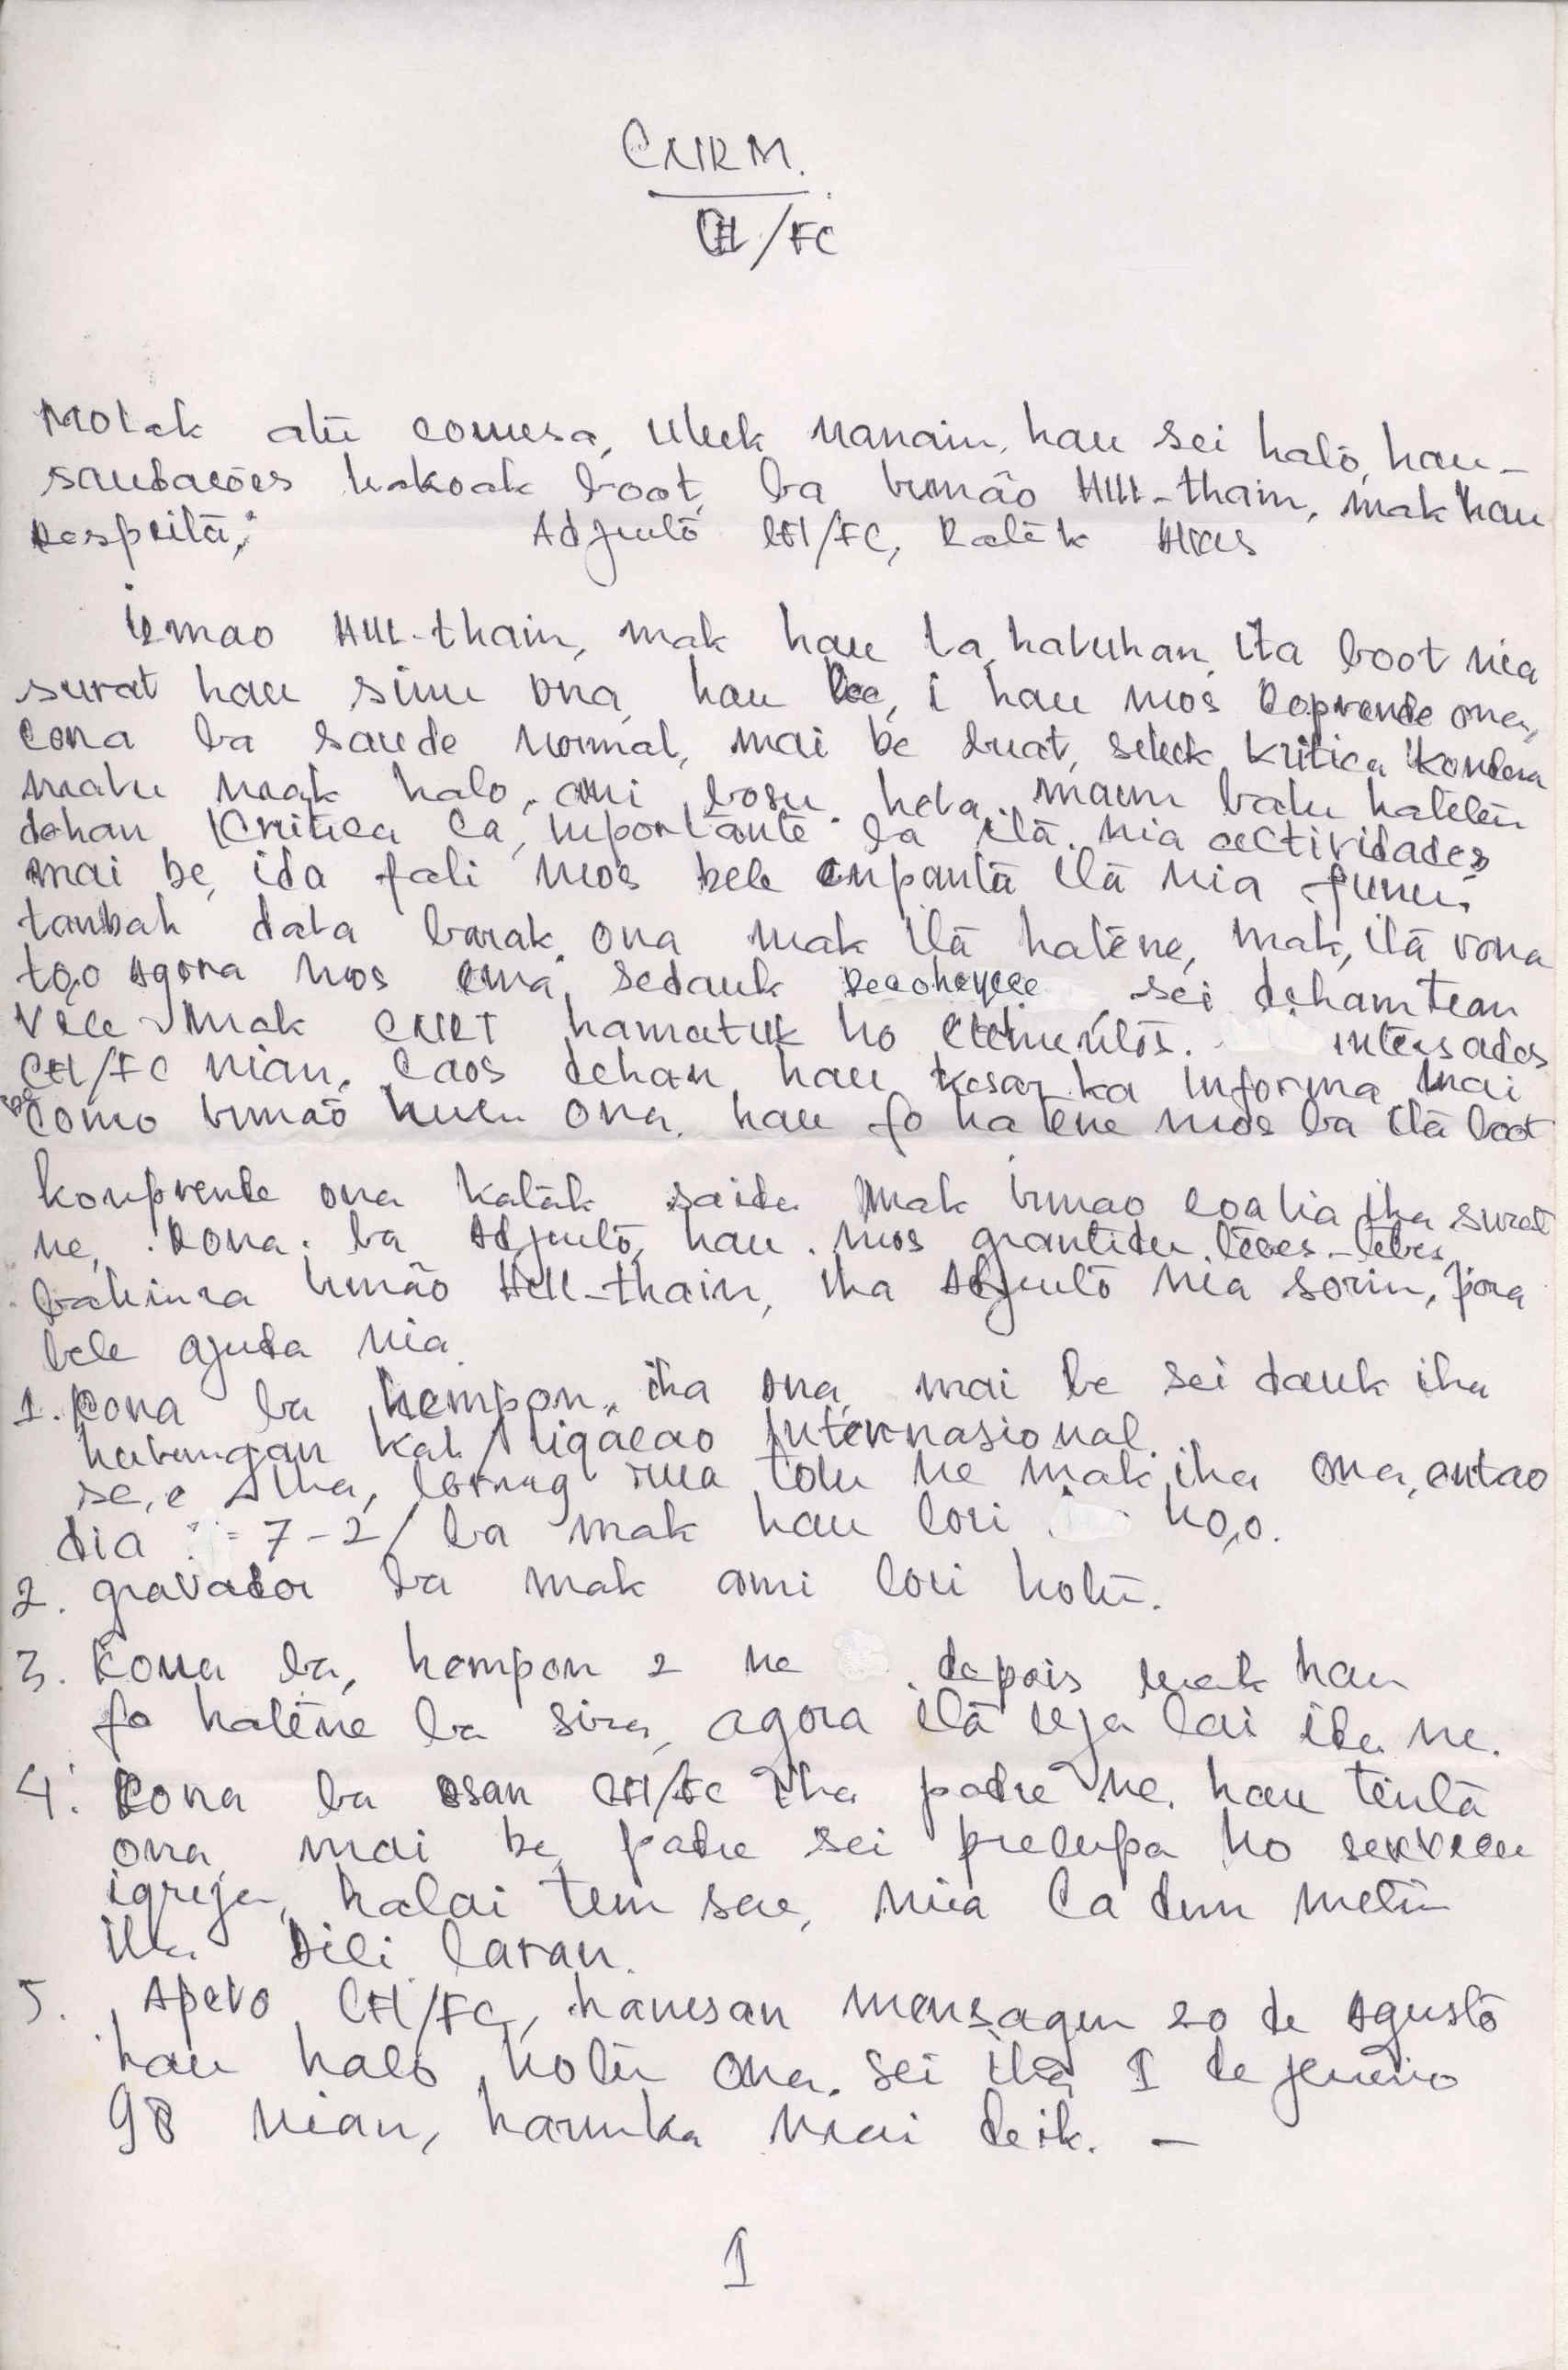 CNRM.
CH/FC
Molok atu comesa, uluk nanain, hau sei halo, hau-
saudacões hakoak boot, ba irmão HUL-thain, mak hau
Respeitã; Adjuntõ CH/FC, Ratêk
irmao HUL-thain, mak hau la haluhan, ita boot nia
surat hau simu ona, hau lee, i hau mos Coprende ona,
cona ba saude normal, mai be buat, seluk, kritica
malu mak halo, ami bosu hela, maun balu hatêtên
dehan Critica ca, inportãnte ba itã nia actividades
mai be, ida fali mos bele itã nia funu.
tanbah data barak ona mak itã hatêne, mak, itã rona
tóo agora mos ema, sedauk Recohenece, sei deham tean
mak CNRT hamatuk ho elementõs. intersados
CH/FC nian, Laos dehan, hau informa mai
be como irmaõ husu ona, hau fo hatene mos ba itã boot
konprende ona katak saida mak irmao coalia iha surat
ne, Kona ba Adjuntõ, hau mos grantidu tebes-tebes
bahinra irmão HUL-thain, iha Adjuntõ nia sorin, para
bele ajuda nia.
1. Kona ba hempon, iha ona, mai be sei dauk iha
hubungan kal / ligacao internasional.
se, e iha, loron rua tolu ne mak iha ona, entao
dia 7-2/ ba mak hau lori ho,o.
2. gravador ba mak ami lori hotu.
3. Kona ba, hempon 2 ne depois mak hau
fo hatêne ba sira, agora itã uja lai ida ne.
4. Kona ba osan CH/FC iha padre ne, hau tentã
ona, mai be, padre sei precupa ho servecu
igreja, halai tun sae, nia la dun metin
iha Dili laran.
5. Apelo CH/FC, hanesan mensagen 20 de Agustõ
hau halo hotu ona, sei iha 1 de jeneiro
98 nian, haruka mai deik. -
1